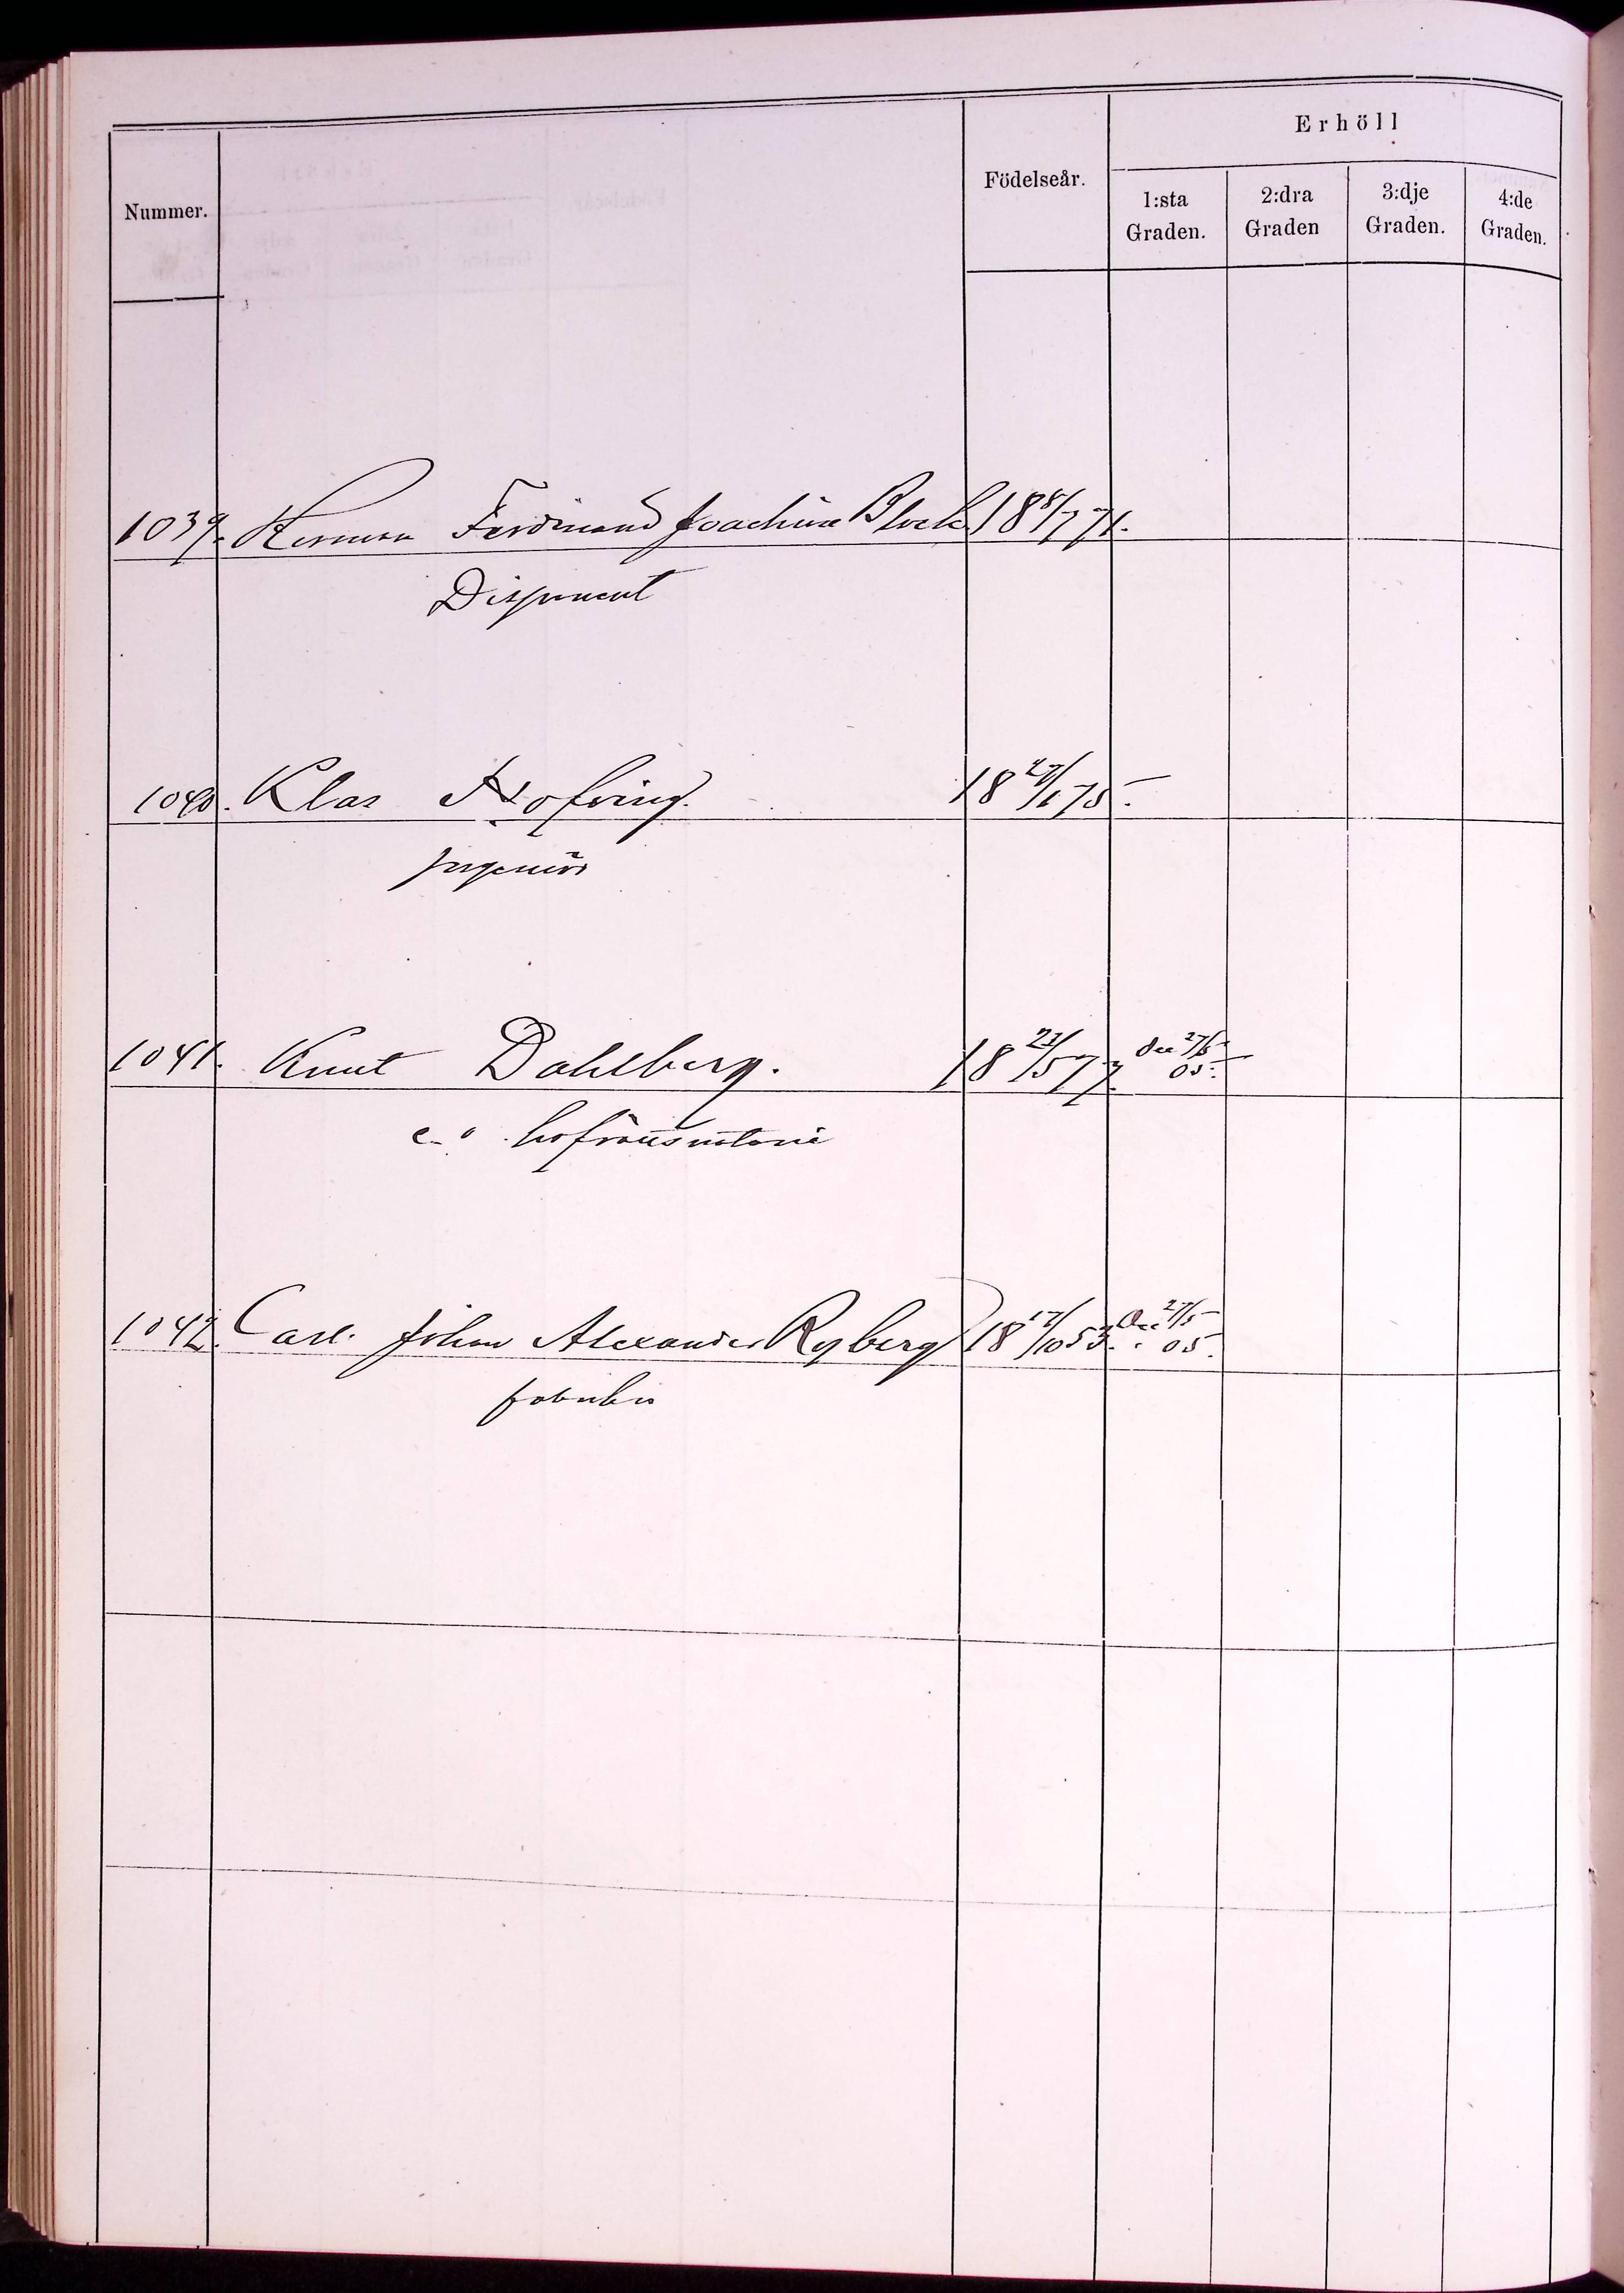 Nummer.
Födelseår.
Erhöll
1:sta Graden.
2:dra Graden
3:dje Graden.
4:de Graden.
1039. Herman Ferdinand Joachim Block 18 8/7 71.
Disponent
1040. Klas Hofring. 18 27/1 75.
Ingeniör
1041. Knut Dahlberg. 18 23/5 77 27/5 05.
e. o. hofrättsnotarie
1042. Carl Johan Alexander Ryberg 18 17/10 53. 27/5 05.